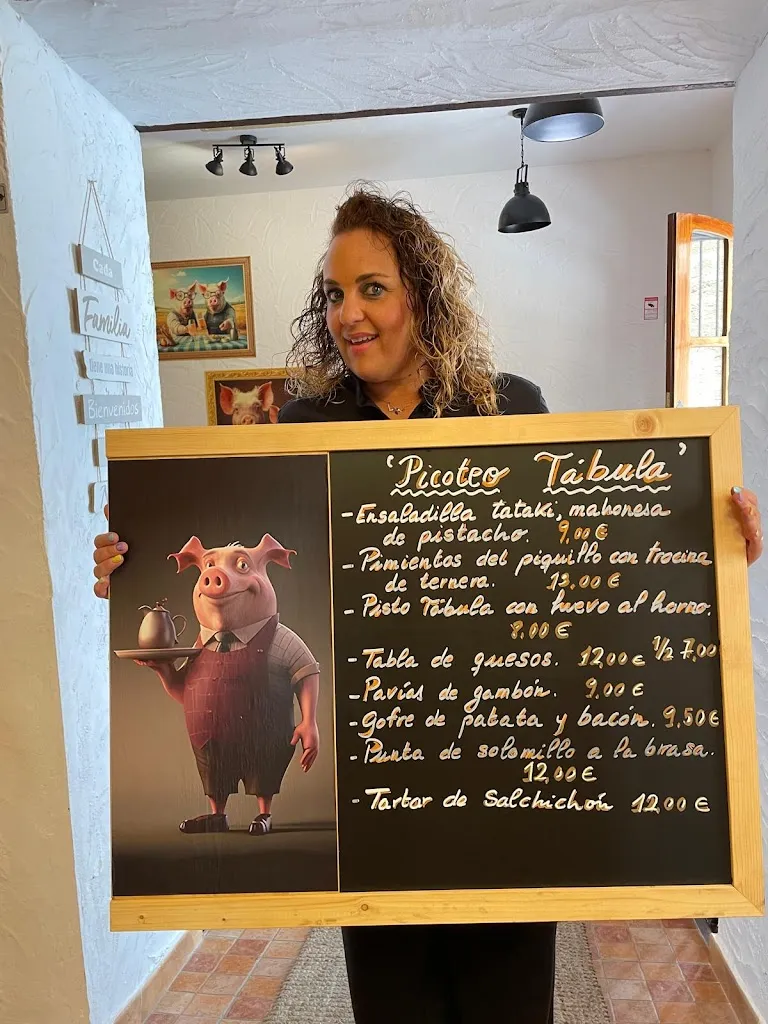 Cada
Familia
tiene una historia
Bienvenidos
'Picoteo Tábula'
- Ensaladilla tataki, mahonesa
de pistacho. 9,00 €
- Pimientos del piquillo con trocina
de ternera. 13,00 €
- Pisto Tábula con huevo al horno.
8,00 €
- Tabla de quesos. 12,00 € 1/2 7,00
- Pavías de gambón. 9,00 €
- Gofre de patata y bacón. 9,50 €
- Punta de solomillo a la brasa.
12,00 €
- Tartar de Salchichón 12,00 €